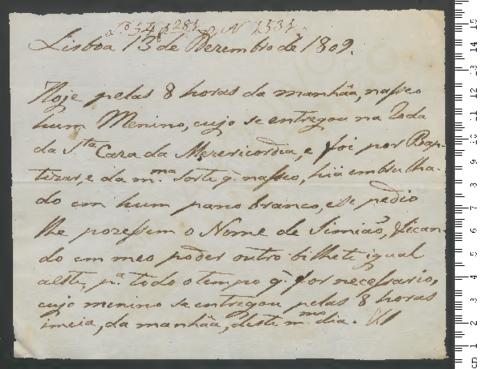 Lº 54 f 281 N 1531
Lisboa 13 de Dezembro de 1809.
Hoje pelas 8 horas da manhãa, nasceo
hum Menino, cujo se entregou na Roda
da Sta Caza da Mezericordia, e foi por Bap-
tizar, e da m.ma sorte q. nasceo, hia embrulha-
do em hum pano branco, e se pedio
lhe pozessem o Nome de Simião, ficàn-
do em meo poder outro bilhete igual
a este, p.a todo o tempo q. for necessario,
cujo menino se entregou pelas 8 horas
imeia, da manhãa, deste m.mo dia.